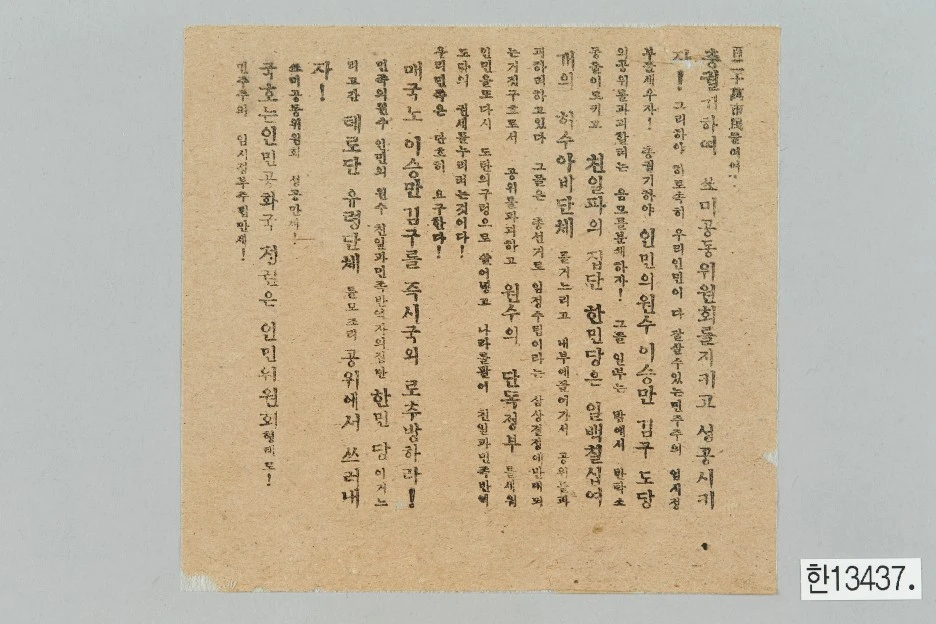 百二十萬市民들에게!
총궐기하여 쏘미공동위원회를지키고 성공시키
자! 그리하야 하로속히 우리인민이 다 잘살수있는민주주의 임시정
부를세우자! 총궐기하야 인민의원수 이승만 김구 도당
의공위를파괴할려는 음모를분쇄하자! 그들 일부는 밖에서 반탁소
동을이르키고 친일파의 집단 한민당은 일백칠십여
개의 허수아비단체 를거느리고 내부에들어가서 공위를파
괴하려하고있다 그들은 총선거로 임정수립이라는 삼상결정에반대되
는거짓구호로서 공위를파괴하고 원수의 단독정부 를세워
인민을또다시 도탄의구렁으로 쓸어넣고 나라를팔어 친일파민족반역
도당의 권세를누리려는것이다!
우리민족은 단호히 요구한다!
매국노 이승만 김구를 즉시국외 로추방하라!
민족의원수 인민의 원수 친일파민족반역자의집단 한민 당이거느
리고간 테로단 유령단체 를모조리 공위에서 쓰러내
자!
쏘미공동위원회 성공만세!
국호는인민공화국 정권은 인민위원회형태로!
민주주의 임시정부수립만세!
한13437.